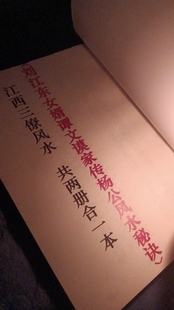 《刘江东女婿谭文谟家传杨公风水秘诀》
江西三僚风水 共两册合一本